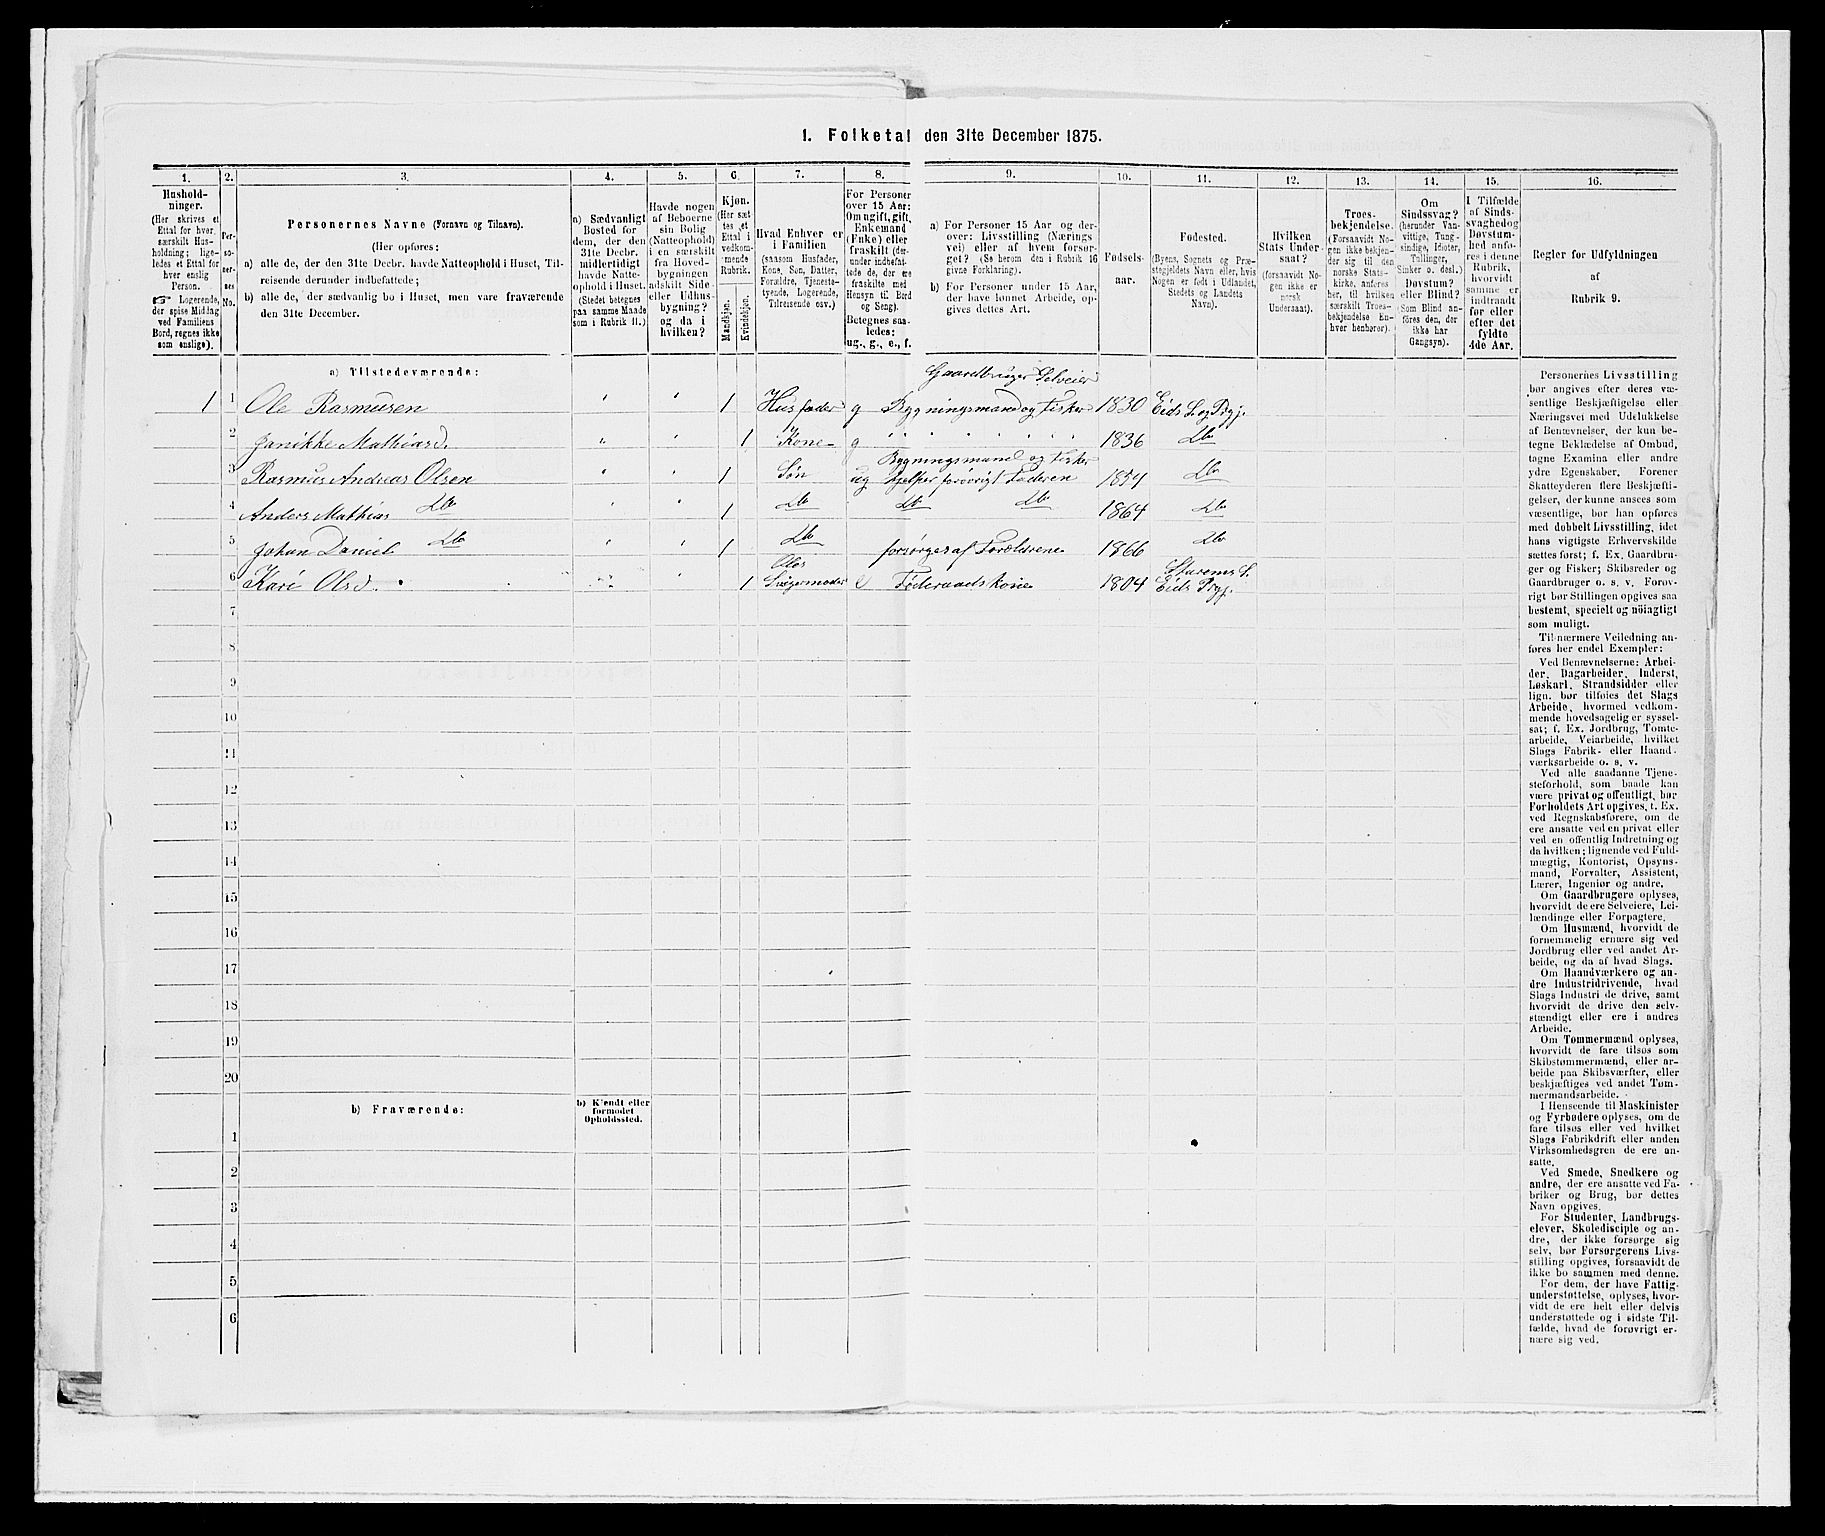 1. Folketal den 31te December 1875.
1. 2. 3. 4. 5. 6. 7. 8. 9. 10. 11. 12. 13. 14. 15. 16.
Hushold-
ninger.
(Her skrives et
Ettal for hver
særskilt Hus-
holdning; lige-
ledes et Ettal for
hver enslig
Person.
☞ Logerende,
der spise Middag
ved Familiens
Bord, regnes ikke
som enslige).
Per-
so-
ner-
nes
No.
Personernes Navne (Fornavn og Tilnavn).
(Her opføres:
a) alle de, der den 31te Decbr. havde Natteophold i Huset, Til-
reisende derunder indbefattede;
b) alle de, der sædvanlig bo i Huset, men vare fraværende
den 31te December.
a) Sædvanligt
Bosted for
dem, der den
31te Decbr.
midlertidigt
havde Natte-
ophold i Huset.
(Stedet betegnes
paa samme Maade
som i Rubrik 11.)
Havde nogen
af Beboerne
sin Bolig
(Natteophold)
i en særskilt
fra Hoved-
bygningen
adskilt Side-
eller Udhus-
bygning?
og da i
hvilken?
Kjøn.
(Her sæt-
tes et
Ettal i
vedkom-
mende
Rubrik.
Mandkjøn.
Kvindekjøn.
Hvad Enhver er
i Familien
(saasom Husfader,
Kone, Søn, Datter,
Forældre, Tjeneste-
tyende, Logerende,
Tilreisende osv.)
For Personer
over 15 Aar:
Om ugift, gift,
Enkemand
(Enke) eller
fraskilt (der-
under indbefat-
tede de, der ere
fraskilte med
Hensyn til Bord
og Seng).
Betegnes saa-
ledes:
ug., g., e., f.
a) For Personer 15 Aar og der-
over: Livsstilling (Nærings
vei) eller af hvem forsør-
get? (Se herom den i Rubrik 16
givne Forklaring).
b) For Personer under 15 Aar,
der have lønnet Arbeide, op-
gives dettes Art.
Fødsels-
aar.
Fødested.
(Byens, Sognets og Præ-
stegjeldets Navn eller, hvis
Nogen er født i Udlandet,
Stedets og Landets
Navn).
Hvilken
Stats Under-
saat?
(forsaavidt No-
gen ikke er
norsk
Undersaat).
Troes-
bekjendelse.
(Forsaavidt No-
gen ikke bekjen-
der sig til den
norske Stats-
kirke, anføres
her, til hvilken
særskilt Troes-
bekjendelse En-
hver henhører).
Om
Sindssvag?
(herunder Van-
vittige, Tung-
sindige, Idioter,
Tullinger,
Sinker o. desl.)
Døvstum?
eller Blind?
(Som Blind an-
føres den, der
ikke har
Gangsyn).
I Tilfælde
af Sinds-
svaghed og
Døvstum-
hed anfø-
res i denne
Rubrik,
hvorvidt
samme er
indtraadt
før eller
efter det
fyldte
4de Aar.
Regler for Udfyldningen
af
Rubrik 9.
a) Tilstedeværende:
Gaardbruger Selveier
1 1 Ole Rasmusen " " 1 Husfader g Bygningsmand og Fisker 1830 Eids S. og Prgj.
2 Janikke Mathiasd. " " 1 Kone g " " " " " " 1836 Do
Bygningsmand og Fisker
3 Rasmus Andreas Olsen " " 1 Søn ug hjelper forøvrigt Faderen 1854 Do
4 Anders Mathias Do " " 1 Do Do Do 1864 Do
5 Johan Daniel Do " " 1 Do forsørges af Forældrene 1866 Do
Oles Starems S.
6 Kari Olsd. " " 1 Svigermoder e Føderaadskone 1804 Eids Prgj.
7
8
9
10
11
12
13
14
15
16
17
18
19
20
b) Fraværende:
b) Kjendt eller
formodet
Opholdssted.
1
2
3
4
5
6
Personernes Livsstilling
bør angives efter deres væ-
sentlige Beskjæftigelse eller
Næringsvei med Udelukkelse
af Benævnelser, der kun be-
tegne Beklædelse af Ombud,
tagne Examina eller andre
ydre Egenskaber. Forener
Skatteyderen flere Beskjæfti-
gelser, der kunne ansees som
væsentlige, bør han opføres
med dobbelt Livsstilling, idet
hans vigtigste Erhvervskilde
sættes først; f. Ex. Gaardbru-
ger og Fisker; Skibsreder og
Gaardbruger o. s. v. Forøv-
rigt bør Stillingen opgives saa
bestemt, specielt og nøiagtigt
som muligt.
Til nærmere Veiledning an-
føres her endel Exempler:
Ved Benævnelserne: Arbei-
der, Dagarbeider, Inderst,
Løskarl, Strandsidder eller
lign. bør tilføies det Slags
Arbeide, hvormed vedkom-
mende hovedsagelig er syssel-
sat; f. Ex. Jordbrug, Tomte-
arbeide, Veiarbeide, hvilket
Slags Fabrik- eller Haand-
værksarbeide o. s. v.
Ved alle saadanne Tjene-
steforhold, som baade kan
være privat og offentligt, bør
Forholdets Art opgives, t. Ex.
ved Regnskabsførere, om de
ere ansatte ved en privat eller
ved en offentlig Indretning og
da hvilken; lignende ved Fuld-
mægtig, Kontorist, Opsyns-
mand, Forvalter, Assistent,
Lærer, Ingeniør og andre.
Om Gaardbrugere oplyses,
hvorvidt de ere Selveiere, Lei-
lændinge eller Forpagtere.
Om Husmænd, hvorvidt de
fornemmelig ernære sig ved
Jordbrug eller ved andet Ar-
beide, og da af hvad Slags.
Om Haandværkere og an-
dre Industridrivende, hvad
Slags Industri de drive, samt
hvorvidt de drive den selv-
stændigt eller ere i andres
Arbeide.
Om Tømmermænd oplyses,
hvorvidt de fare tilsøs som
Skibstømmermænd, eller ar-
beide paa Skibsværfter, eller
beskjæftiges ved andet Tøm-
mermandsarbeide.
I Henseende til Maskinister
og Fyrbødere oplyses, om de
fare tilsøs eller ved hvilket
Slags Fabrikdrift eller anden
Virksomhedsgren de ere an-
satte.
Ved Smede, Snedkere og
andre, der ere ansatte ved Fa-
briker og Brug, bør dettes
Navn opgives.
For Studenter, Landbrugs-
elever, Skoledisciple og an-
dre, der ikke forsørge sig
selv, bør Forsørgerens Livs-
stilling opgives, forsaavidt de
ikke bo sammen med denne.
For dem, der have Fattig-
understøttelse, oplyses, hvor-
vidt de ere helt eller delvis
understøttede og i sidste Til-
fælde, hvad de forøvrigt er-
nære sig ved.